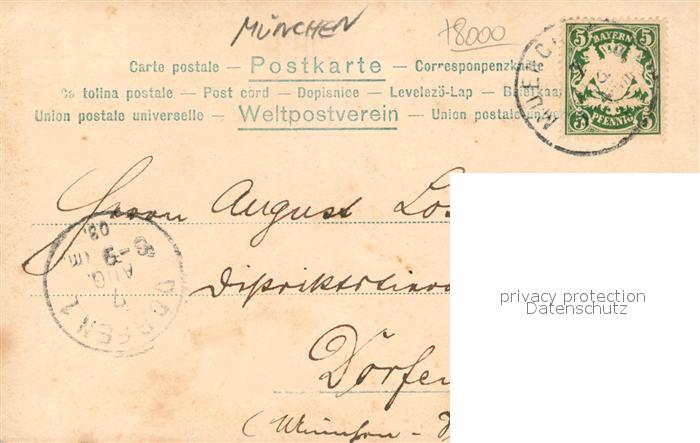 MÜNCHEN
+8000
Carte postale — Postkarte — Corresponpenzkarte
Ca tolina postale — Post cord — Dopisnice — Levelezö-Lap — Briefkaa
Union postale universelle — Weltpostverein — Union postale unive
5 BAYERN 5
5 PFENNIG 5
MUENC
Herrn August Los
Distriktstiera
Dorfen
(München -
DORFEN 1
7
AUG.
8-9 Vm.
03.
privacy protection
Datenschutz